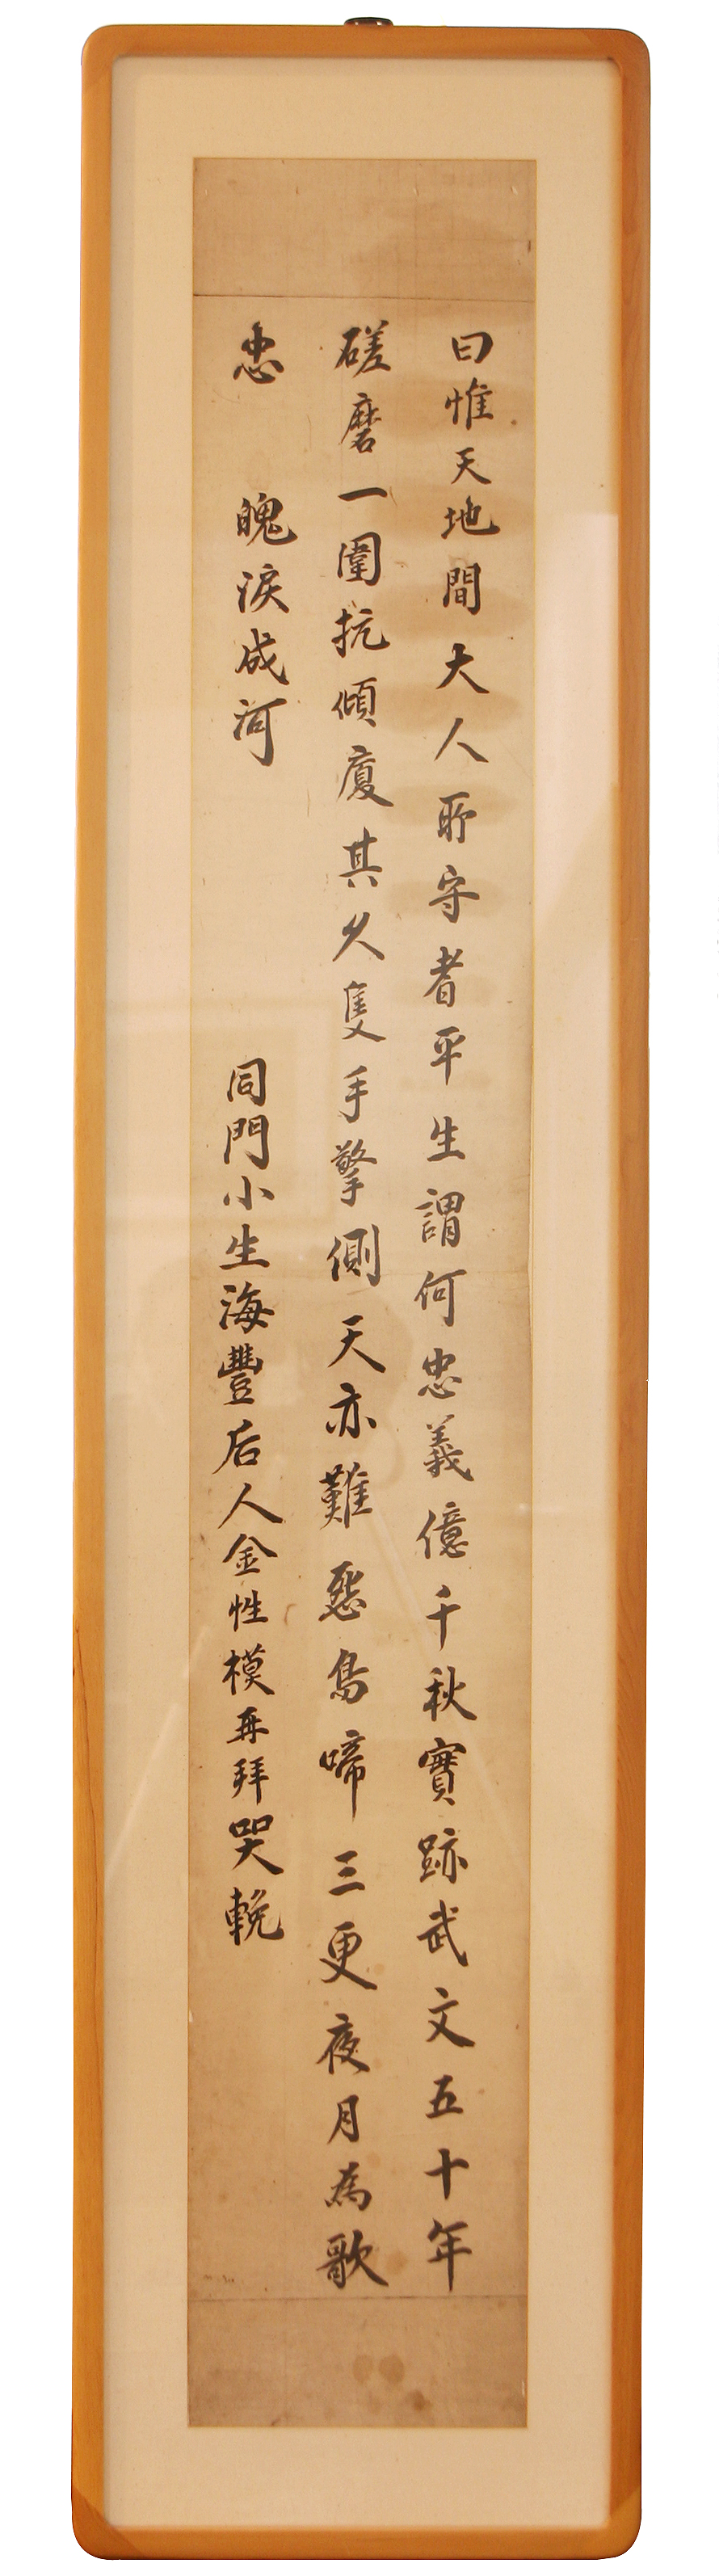 曰惟天地間大人所守者平生謂何忠義億千秋實跡武文五十年
磋磨一圍抗傾廈其久隻手擎側天亦難惡鳥啼三更夜月為歌
忠 魄淚成河 同門小生海豐后人金性模再拜哭輓